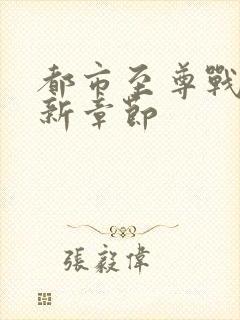 都市至尊戰
新章節
張毅偉